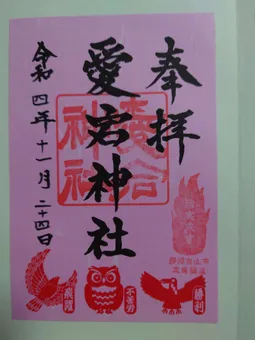 奉拝
愛宕神社
令和四年十一月二十四日
愛宕神社
飛躍
不苦労
勝利